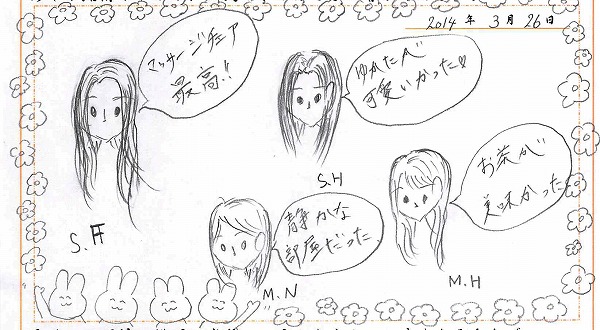 2014年 3月 26日
マッサージチェア
最高!!
ゆかたが
可愛いかった♡
S.H
お茶が
美味かった
静かな
部屋だった
M.N
M.H